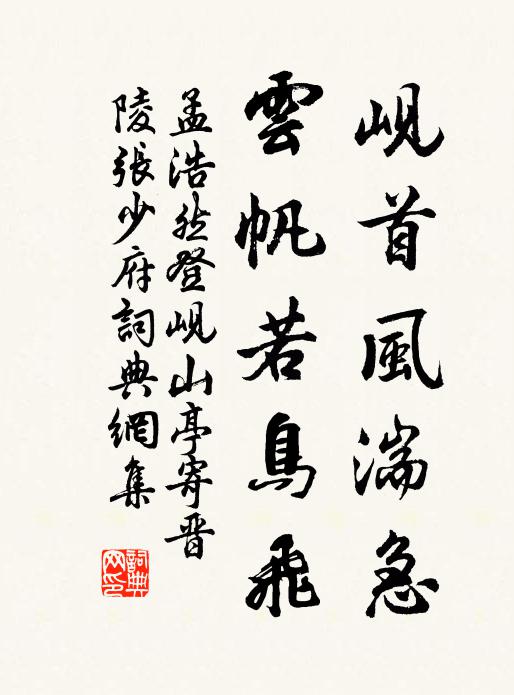 峴首風湍急
雲帆若鳥飛
孟浩然登峴山亭寄晉
陵張少府詞典網集
詞典
网印